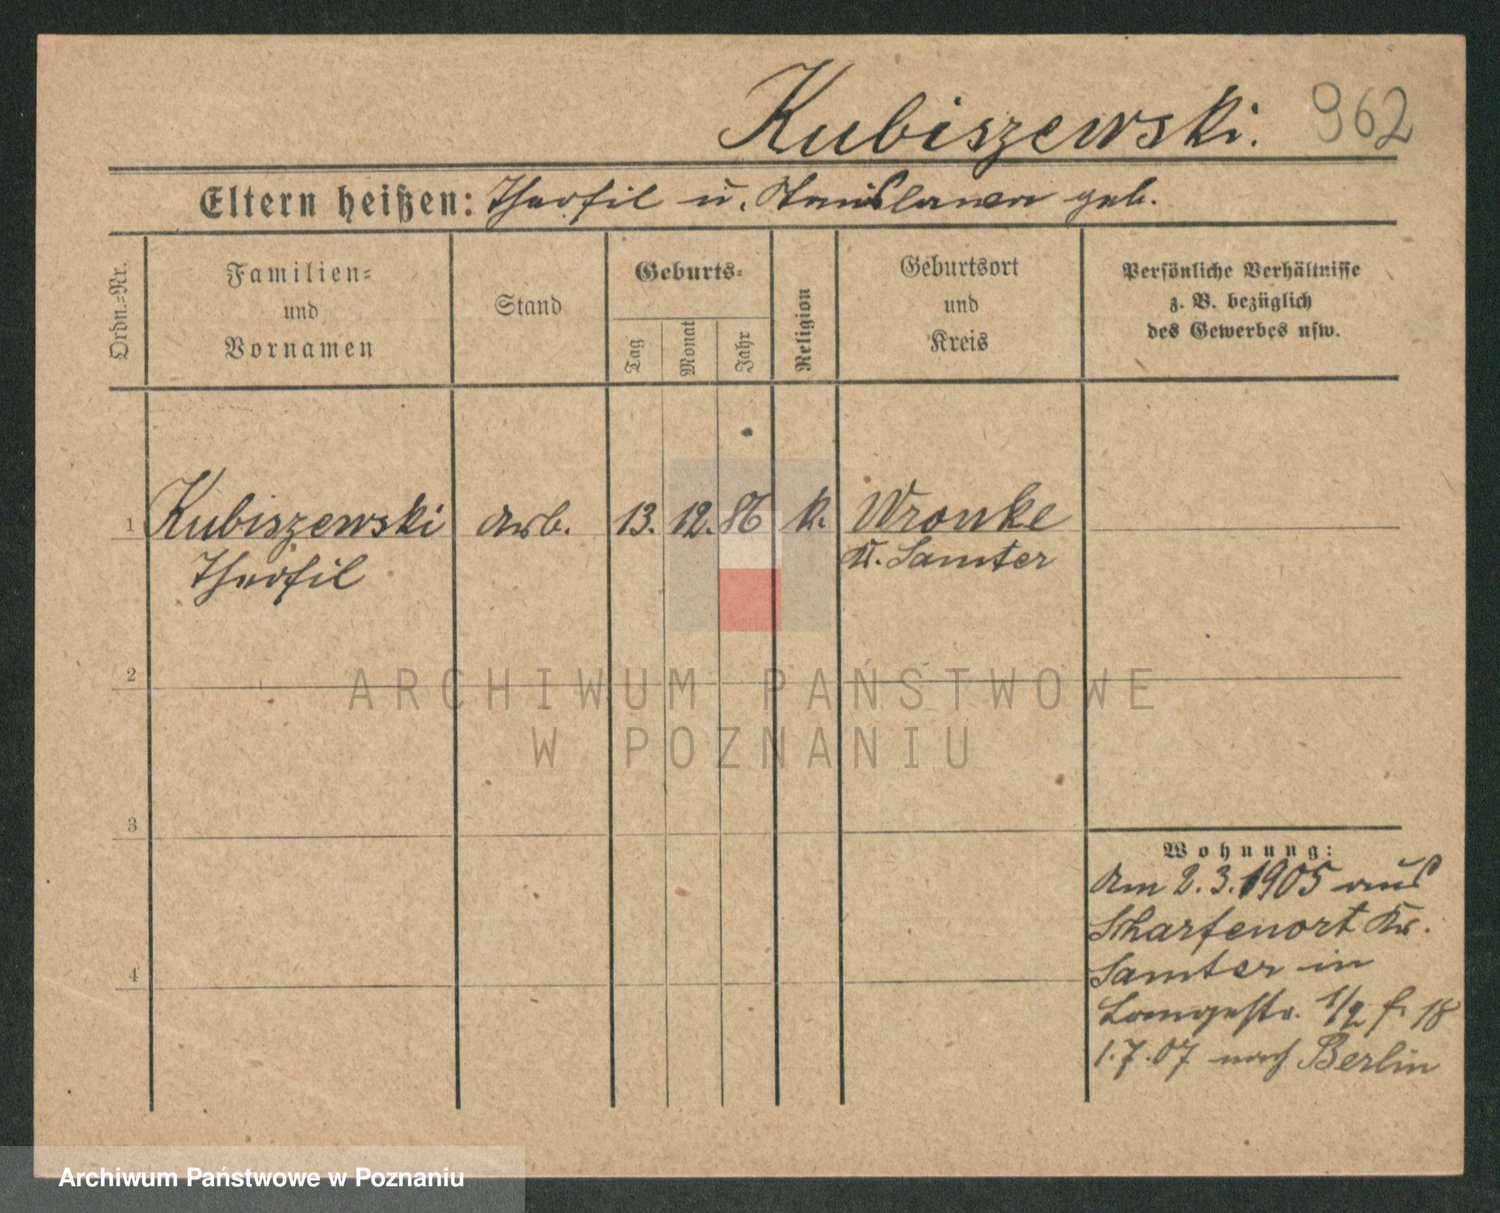 Kubiszewski. 962
Eltern heißen: Theofil u. Stanislawa geb.
Ordn.=Nr.
Familien=
und
Vornamen
Stand
Geburts=
Tag
Monat
Jahr
Religion
Geburtsort
und
Kreis
Persönliche Verhältnisse
z. B. bezüglich
des Gewerbes usw.
1 Kubiszewski arb. 13. 12. 86 k. Wronke
Theofil Kr. Samter
2
3
4
Wohnung:
Am 2. 3. 1905 aus
Scharfenort Kr.
Samter in
Langestr. 1/2 f. 18
1. 7. 07 nach Berlin
ARCHIWUM PAŃSTWOWE
W POZNANIU
Archiwum Państwowe w Poznaniu